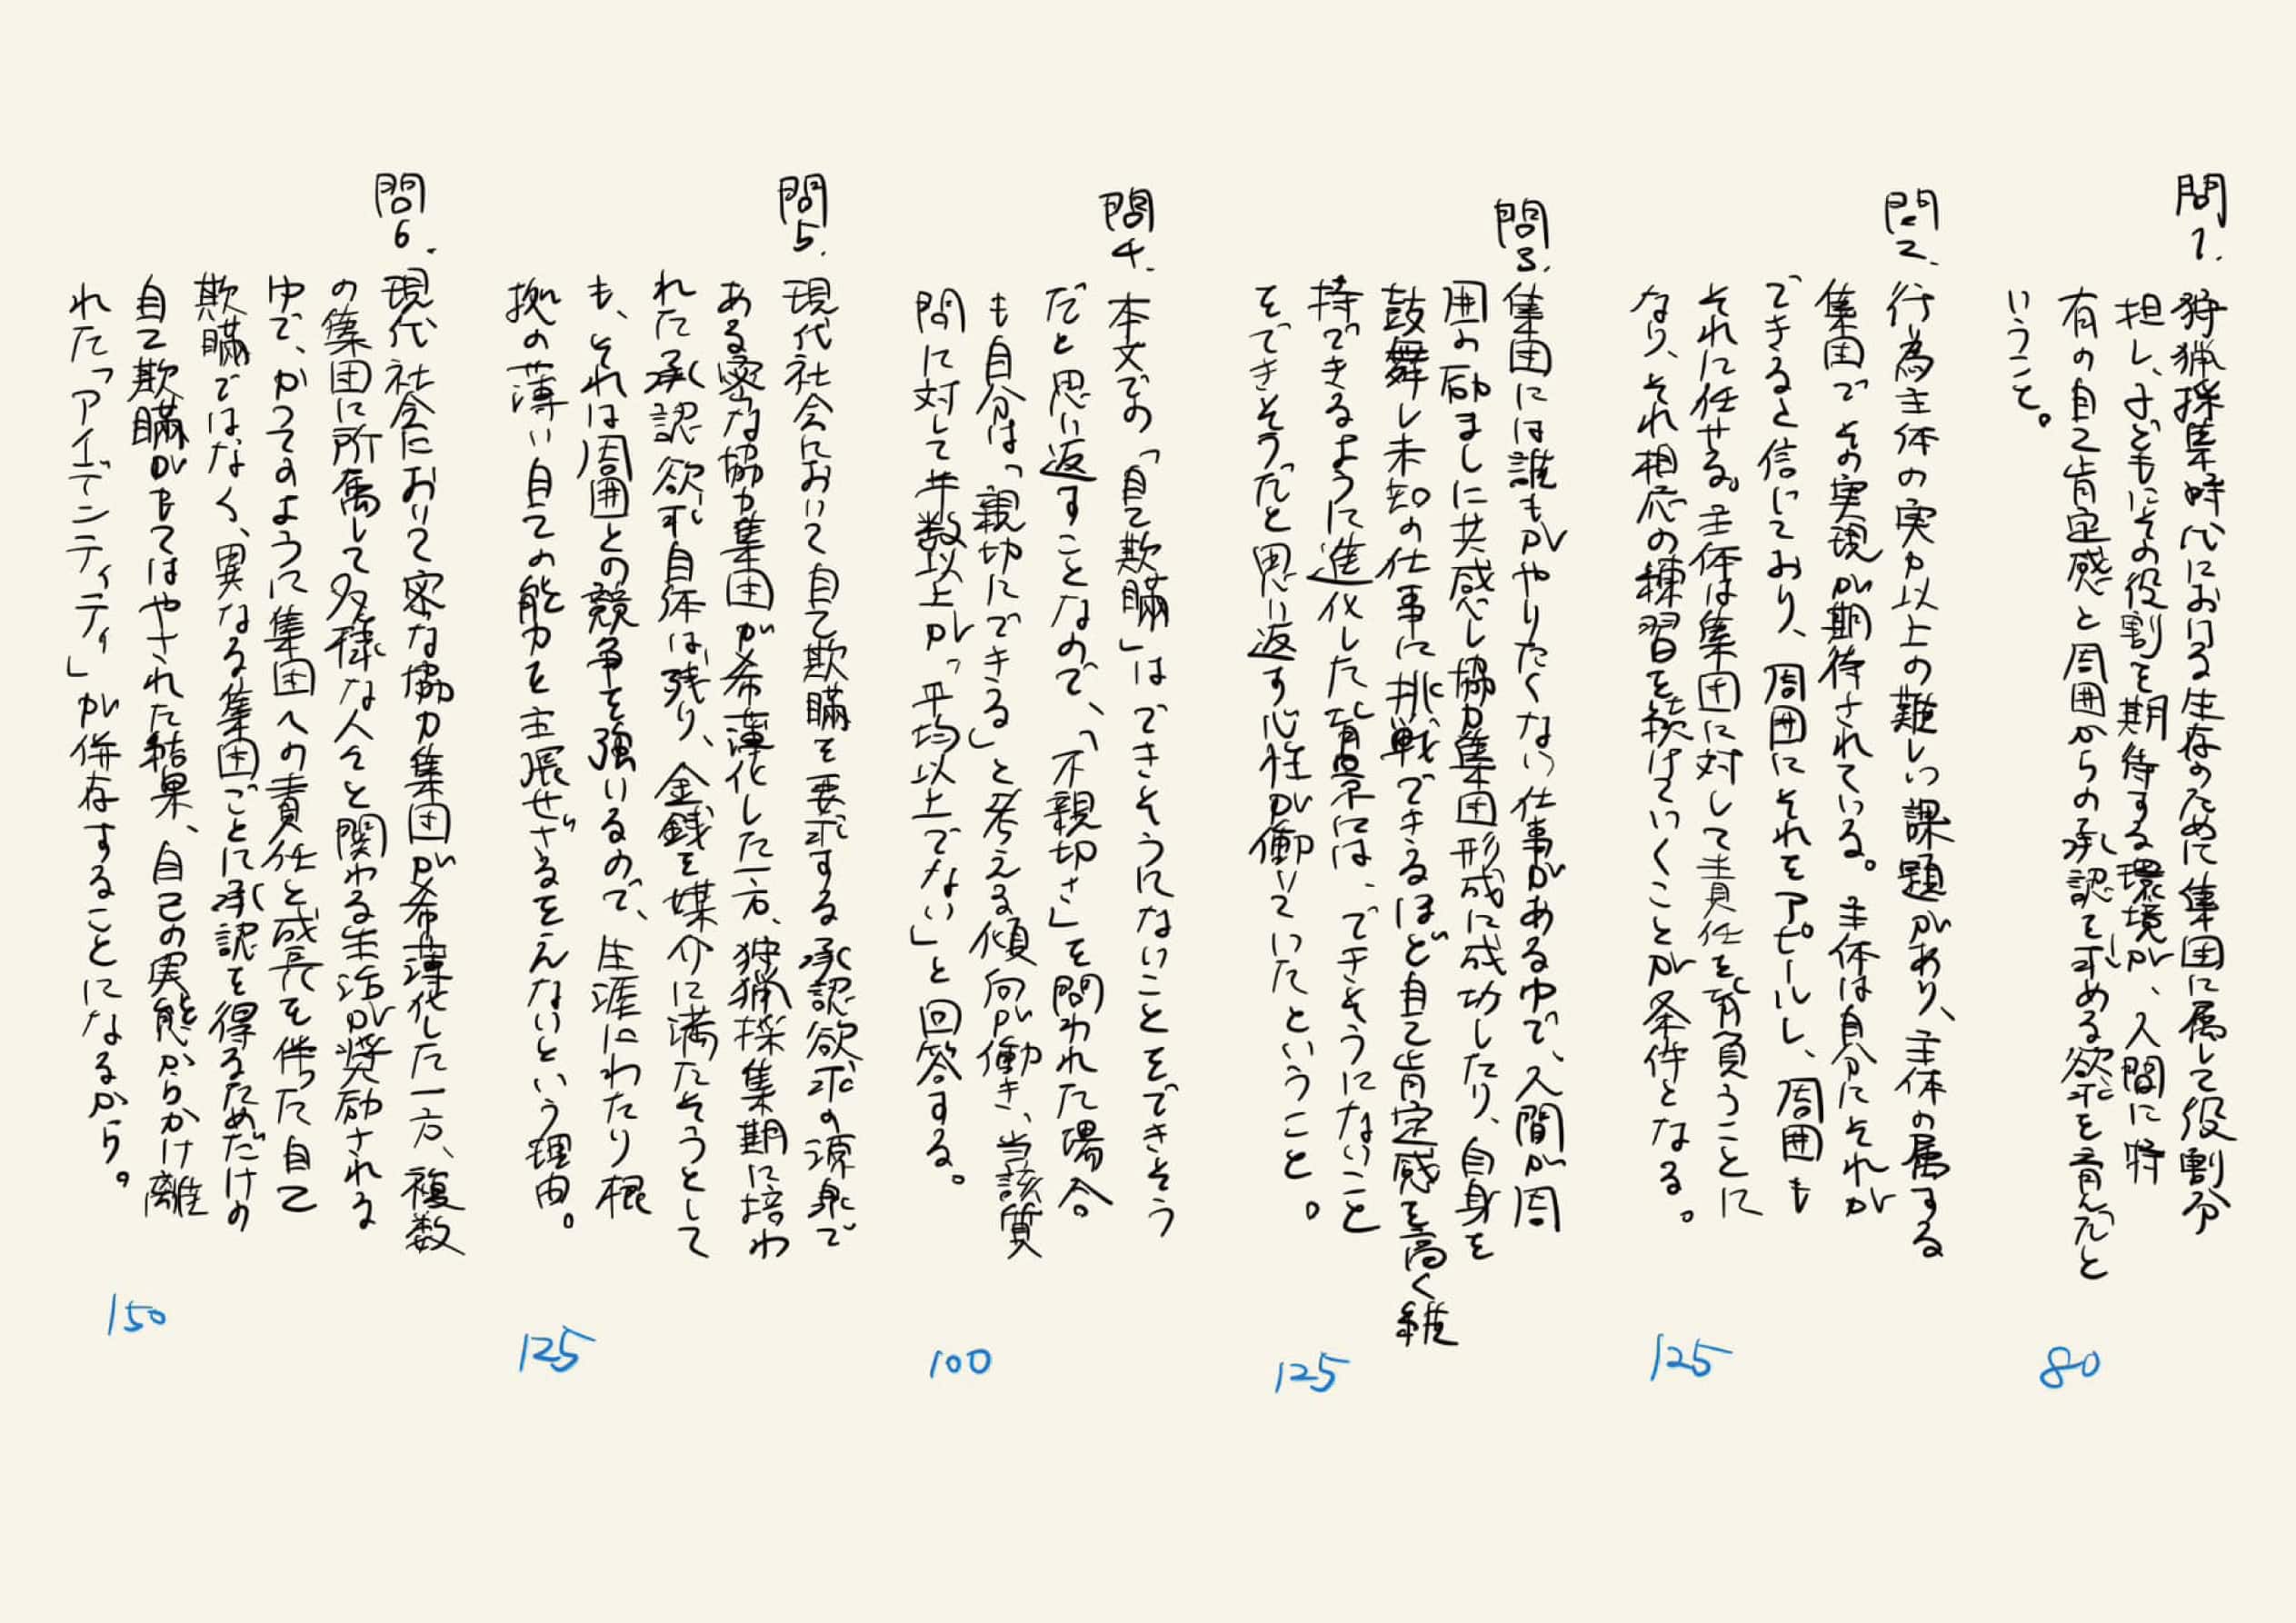 問1.
狩猟採集時代における生存のために集団に属して役割分
担し、子どもにその役割を期待する環境が、人間に特
有の自己肯定感と周囲からの承認を求める欲求を育んだと
いうこと。
80
問2.
行為主体の実力以上の難しい課題があり、主体の属する
集団でその実現が期待されている。主体は自分にそれが
できると信じており、周囲にそれをアピールし、周囲も
それに任せる。主体は集団に対して責任を背負うことに
なり、それ相応の練習を続けていくことが条件となる。
125
問3.
集団には誰もがやりたくない仕事がある中で、人間が周
囲の励ましに共感し協力集団形成に成功したり、自身を
鼓舞し未知の仕事に挑戦できるほど自己肯定感を高く維
持できるように進化した背景には、できそうにないこと
をできそうだと思い返す心性が働いていたということ。
125
問4.
本文での「自己欺瞞」はできそうにないことをできそう
だと思い返すことなので、「不親切さ」を問われた場合
も自分は「親切にできる」と考える傾向が働き、当該質
問に対して半数以上が「平均以上でない」と回答する。
100
問5.
現代社会において自己欺瞞を要求する承認欲求の源泉で
ある密な協力集団が希薄化した一方、狩猟採集期に培わ
れた承認欲求自体は残り、金銭を媒介に満たそうとして
も、それは周囲との競争を強いるので、生涯にわたり根
拠の薄い自己の能力を主張せざるをえないという理由。
125
問6.
現代社会において密な協力集団が希薄化した一方、複数
の集団に所属して多様な人々と関わる生活が奨励される
中で、かつてのように集団への責任と成長を伴った自己
欺瞞ではなく、異なる集団ごとに承認を得るためだけの
自己欺瞞がもてはやされた結果、自己の実態からかけ離
れた「アイデンティティ」が併存することになるから。
150